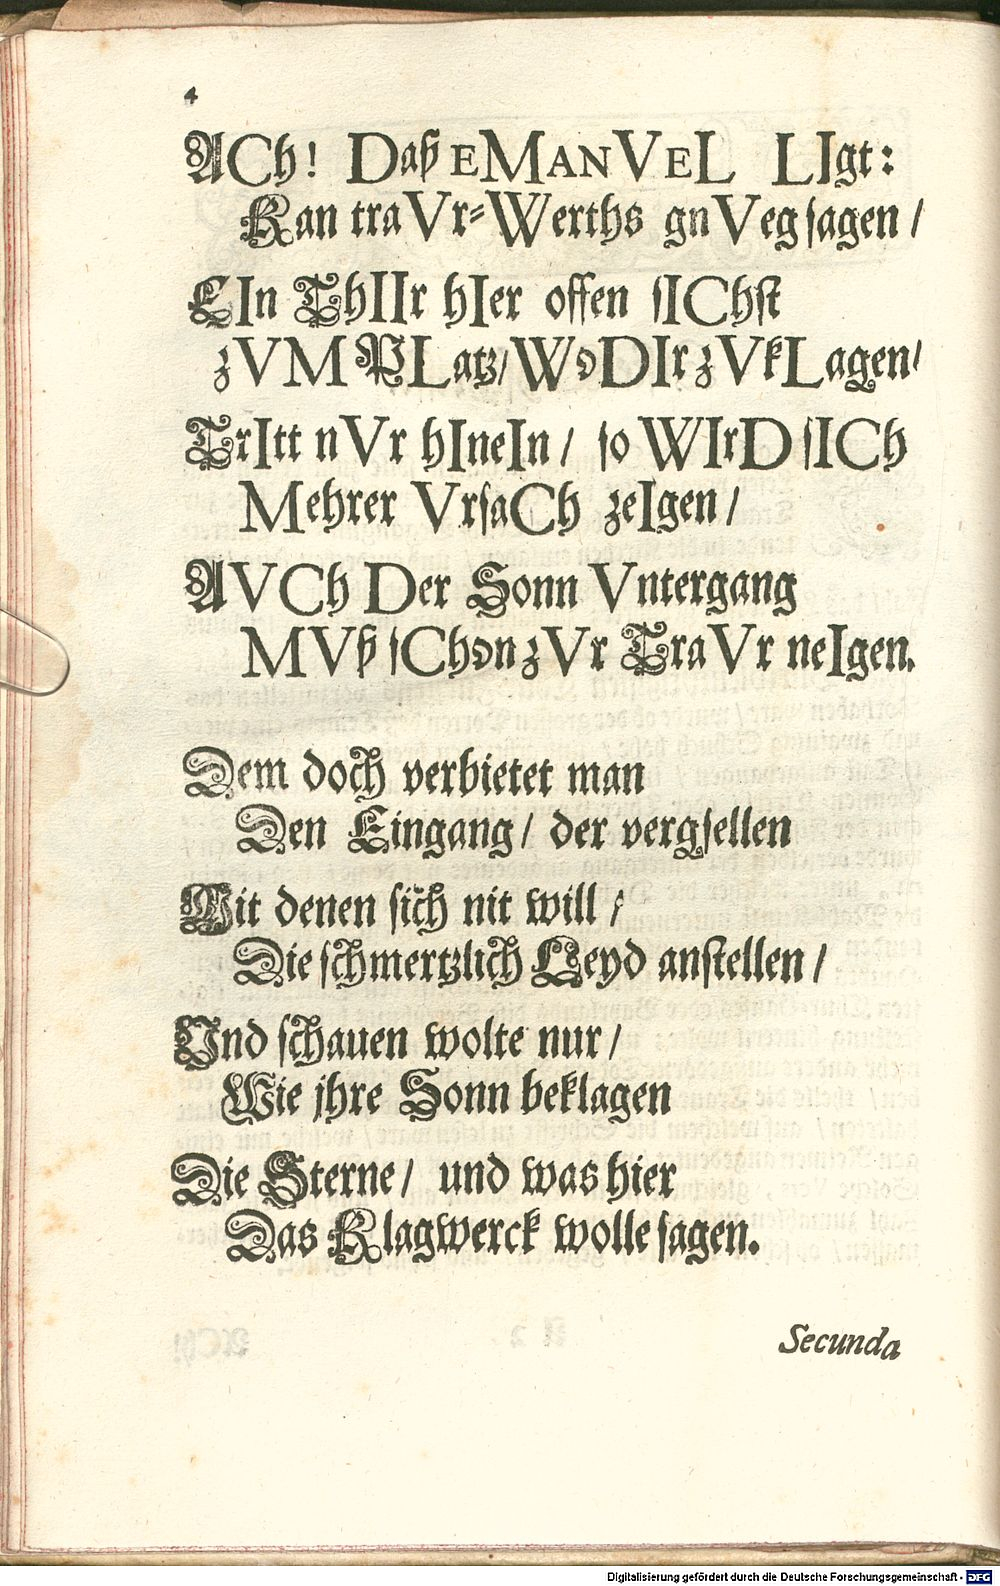 4
ACh! Daß EMANVEL LIgt:
Kan traVr-Werths gnVeg sagen /
EIn ThIIr hIer offen sIChst
zVM PLatz/ WoDIr zVkLagen/
TrItt nVr hIneIn / so WIrD sICh
Mehrer VrsaCh zeIgen /
AVCh Der Sonn Vntergang
MVß sChon zVr TraVr neIgen.
Dem doch verbietet man
Den Eingang / der vergsellen
Mit denen sich nit will /
Die schmertzlich Leyd anstellen /
Vnd schauen wolte nur /
Wie jhre Sonn beklagen
Die Sterne / und was hier
Das Klagwerck wolle sagen.
Secunda
Digitalisierung gefördert durch die Deutsche Forschungsgemeinschaft - DFG